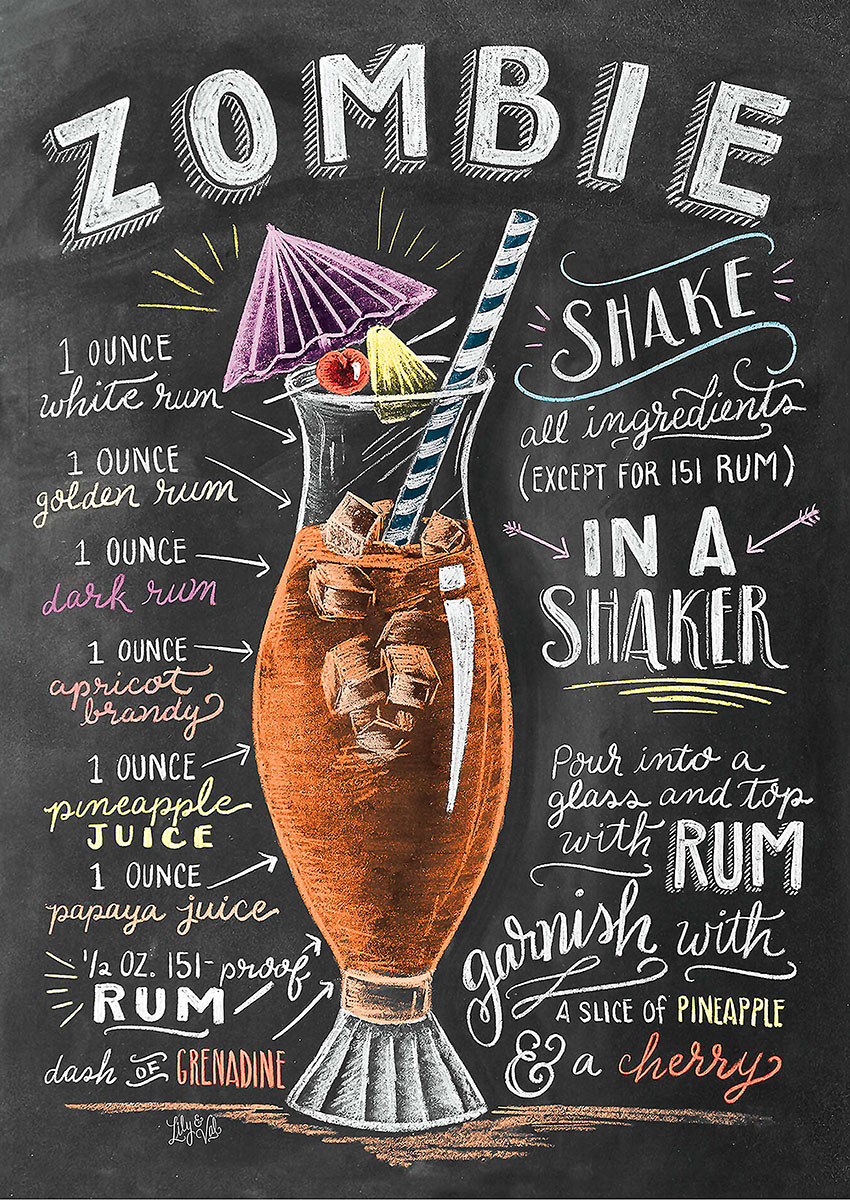 ZOMBIE
1 OUNCE
white rum
1 OUNCE
golden rum
1 OUNCE
dark rum
1 OUNCE
apricot
brandy
1 OUNCE
pineapple
JUICE
1 OUNCE
papaya juice
1/2 OZ. 151-proof
RUM
dash OF GRENADINE
SHAKE
all ingredients
(EXCEPT FOR 151 RUM)
IN A
SHAKER
Pour into a
glass and top
with RUM
garnish with
A SLICE OF PINEAPPLE
& a cherry
Lily &
Val